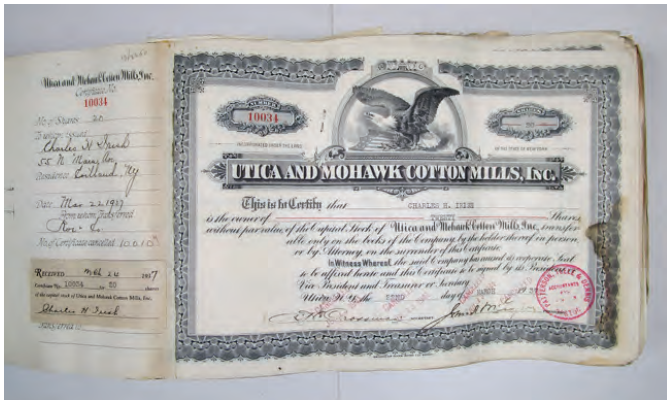 Utica and Mohawk Cotton Mills, Inc.
Certificate No.
10034
No. of Shares 20
To whom issued
Charles H Irish
55 N Main
Residence Cortland, NY
Date Mar 22 1937
From whom Transferred
No. of Certificate cancelled 10010
RECEIVED 24 1937
Certificate No. 10034 for 20 shares
of the capital stock of Utica and Mohawk Cotton Mills, Inc.
Charles H Irish
NUMBER
10034
SHARES
20
INCORPORATED UNDER THE LAWS
OF THE STATE OF NEW YORK
UTICA AND MOHAWK COTTON MILLS, INC.
This is to Certify that CHARLES H. IRISH
is the owner of TWENTY Shares
without par value of the Capital Stock of Utica and Mohawk Cotton Mills, Inc., transfer-
able only on the books of the Company by the holder thereof in person
or by Attorney, on the surrender of this Certificate.
In Witness Whereof, the said Company has caused its corporate seal
to be affixed hereto and this Certificate to be signed by its President or
Vice President and Treasurer or Secretary
Utica, N.Y. the 22ND day of MARCH 1937